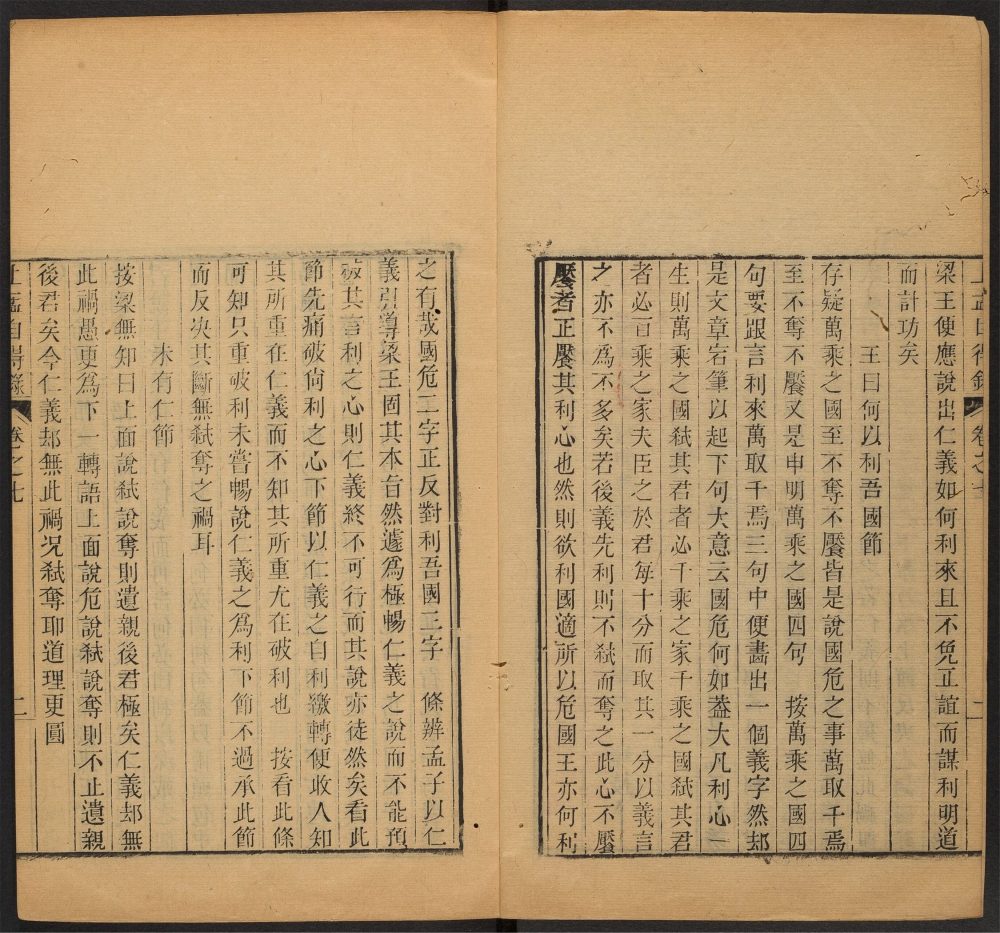 梁王便應說出仁義如何利來且不免正誼而謀利明道
而計功矣
王曰何以利吾國節
存疑萬乘之國至不奪不饜皆是說國危之事萬取千焉
至不奪不饜又是申明萬乘之國四句 按萬乘之國四
句要跟言利來萬取千焉三句中便畵出一個義字然却
是文章宕筆以起下句大意云國危何如葢大凡利心一
生則萬乘之國弑其君者必千乘之家千乘之國弑其君
者必百乘之家夫臣之於君每十分而取其一分以義言
之亦不爲不多矣若後義先利則不弑而奪之此心不饜
饜者正饜其利心也然則欲利國適所以危國王亦何利
之有哉國危二字正反對利吾國三字 條辨孟子以仁
義引導梁王固其本旨然遽爲極暢仁義之說而不能預
破其言利之心則仁義終不可行而其說亦徒然矣看此
節先痛破尚利之心下節以仁義之自利繳轉便收人知
其所重在仁義而不知其所重尤在破利也 按看此條
可知只重破利未嘗暢說仁義之爲利下節不過承此節
而反决其斷無弑奪之禍耳
未有仁節
按梁無知曰上面說弑說奪則遺親後君極矣仁義却無
此禍愚更爲下一轉語上面說危說弑說奪則不止遺親
後君矣今仁義却無此禍况弑奪耶道理更圓
上孟自得錄
卷之七
二